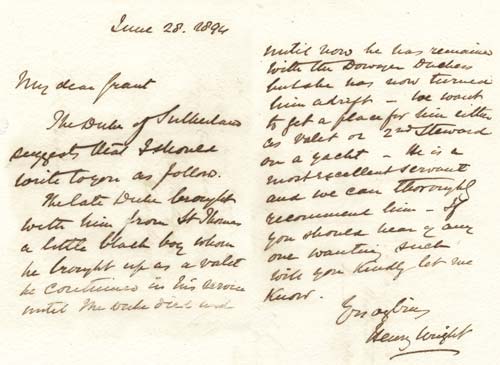 June 28. 1894
My dear Grant
The Duke of Sutherland
suggests that I should
write to you as follow.
The late Duke brought
with him from St Thomas
a little black boy whom
he brought up as a valet
he continued in his service
until the Duke died and
until now he has remained
with the Dowager Duchess
but she has now turned
him adrift - we want
to get a place for him either
as valet or 2nd Steward
on a yacht - He is a
most excellent servant
and we can thoroughly
recommend him - If
you should hear of any
one wanting such
will you kindly let me
know.
Henry Wright